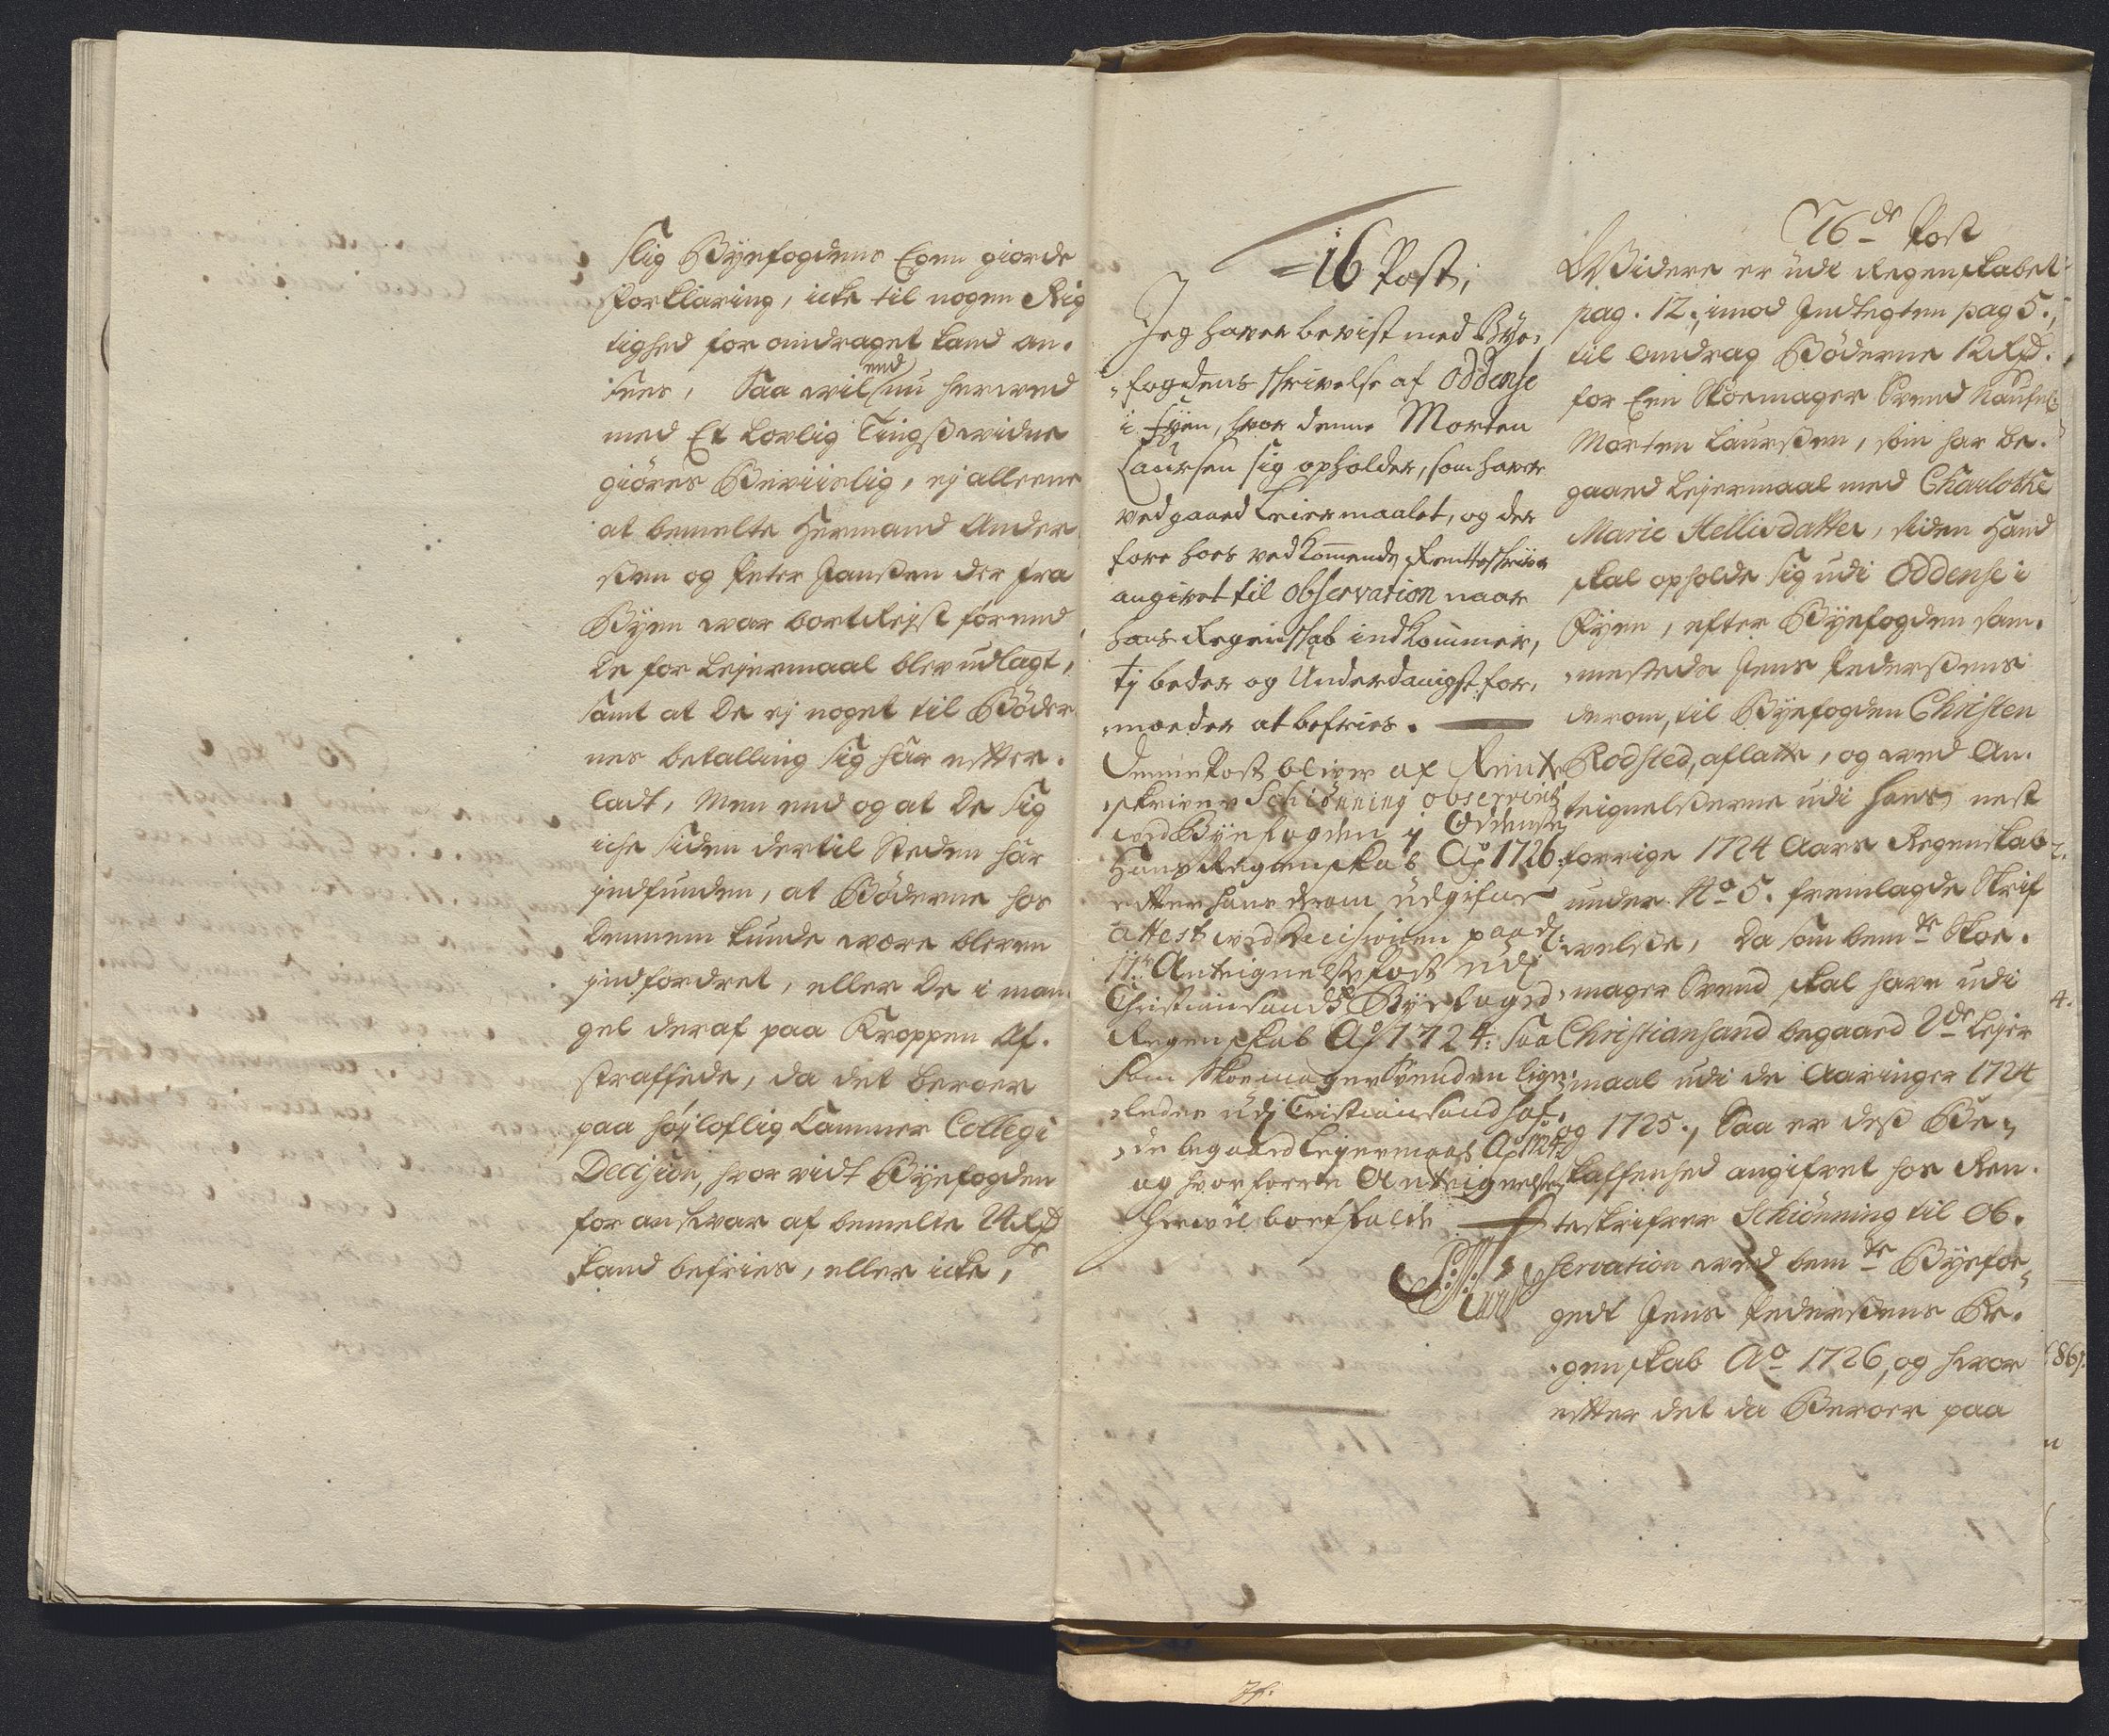 slig Býefogdens Egen giorde
forklaring, icke til nogen Rig
tighed for omdraget kand an-
sees, Saa wil end nu herved
med Et lovlig Tingswidne
giöres Beviislig, ej alleene
at bemelte Hermand Ander
ssen og Peter Janssen der fra
Býen war bortReist forend
de for Lejermaal blev udlagt,
samt at de ej noget til Böder
nes betalling sig har efter-
ladt, Men end og at de sig
icke siden dertil Steden har
indfunden, at Böderne hos
dennem kunde være bleven
indfordret, eller de i man-
gel deraf paa Kroppen af-
straffede, da det beroer
paa höjloflig Cammer Collegi
Decision, hvor vidt Býefogden
for ansvar af bemelte 24 Rd
kand befries, eller icke,
16 Post,
Jeg haver bevist med Bye-
fogdens skrivelse af Oddense
i Fyen, hvor denne Morten
Laursen sig opholder, som haver
vedgaaed Leiermaalet, og der
fore hoes vedkommende Rentteskriver
angivet til observation naar
hans Regenskab indkommer,
ty beder og Underdanigst for-
moeder at befries.
Denne Post bliver af Rente
skriver Schiönning observerit
wed Býefogden i Oddense
Hans Regenskab Ao 1726
efter hans derom udgifne
attest wed Decisionen paa d:
11te Antegnelse Post udj
Christiansands Býefoged
Regenskab Ao 1724: Saa
som Skoemager Svenden lige-
ledes udj Cristiansand haf-
de begaaed Leyermaal Ao 1724
og hvorforre Antegnelsen
herwil bortfalde
76de Post
Widere er udi Regenskabet
pag. 12, imod Indtegten pag 5.,
til omdrag Böderne 12 Rd.
for Een Skoemager Svend Naufnl:
Morten Laurssen, som har be-
gaaed Lejermaal med Charlothe
Marie Hellisdatter, siden hand
skal opholde sig udi Oddense i
Fyen, efter Býefogden sam-
mestede Jens Pederssens
derom, til Býefogden Christen
Rodsted, aflatte, og wed An-
teignelsserne udi hans nest
forrige 1724 Aars Regenskab
under No 5. fremlagde Skrif
welsse, da som bemte Skoe-
mager Svend skal have udi
Christiansand begaaed 2de Lejer
maal udi de Aaringer 1724
og 1725., Saa er dess Be-
skaffenhed angifvet hos Ren-
teskrifver Schiönning til Ob-
servation wed bemte Býefor-
gedt Jens Pederssens Re-
genskab Ao 1726, og hvor
efter det da Beroer paa